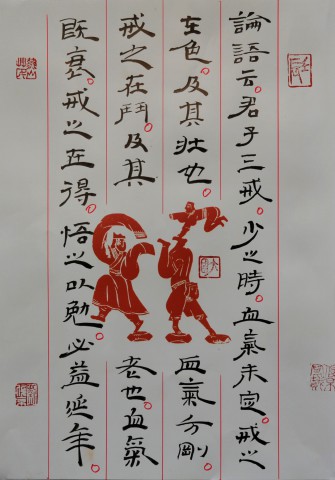 論語云。君子三戒。少之時。血氣未定。戒之
在色。及其壯也。血氣方剛
戒之在鬥。及其老也。血氣
既衰。戒之在得。悟之以勉。必益延年。